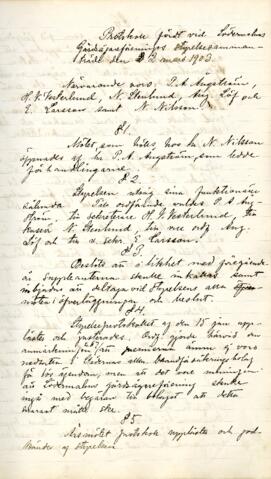 Protokoll fördt vid Södermalms
Gårdsägareförenings styrelsesamman-
träde den 22 mars 1903.
Närvarande voro: P. A. Ångström,
H. V. Vesterlund, N. Stenlund, Aug. Löf och
E. Larsson samt N. Nilsson.
§ 1.
Mötet, som hölls hos hr N. Nilsson
öppnades af hr P. A. Ångström, som ledde
förhandlingarne.
§ 2.
Styrelsen utsåg sina funktionärer
sålunda: Till ordförande valdes P. A. Ång-
ström, till sekreterare H. V. Vesterlund, till
kassör N. Stenlund, till vice ordf. Aug.
Löf och till v. sekr. E. Larsson.
§ 3.
Beslöts att i likhet med föregående
år suppleanterna skulle inkallas samt
inbjudas att deltaga vid styrelsens alla
möten i öfverläggningar och beslut.
§ 4.
Styrelseprotokollet af den 15 jan. upp-
lästes och justerades. Ordf. gjorde härvid en
anmärkning att premierna
för lös egendom, men att det vore meningen
att Södermalms gårdsägareförening skulle
ingå med begäran till bolaget att detta
snarast måtte ske.
§ 5.
Årsmötets protokoll upplästes och god-
kändes af styrelsen.